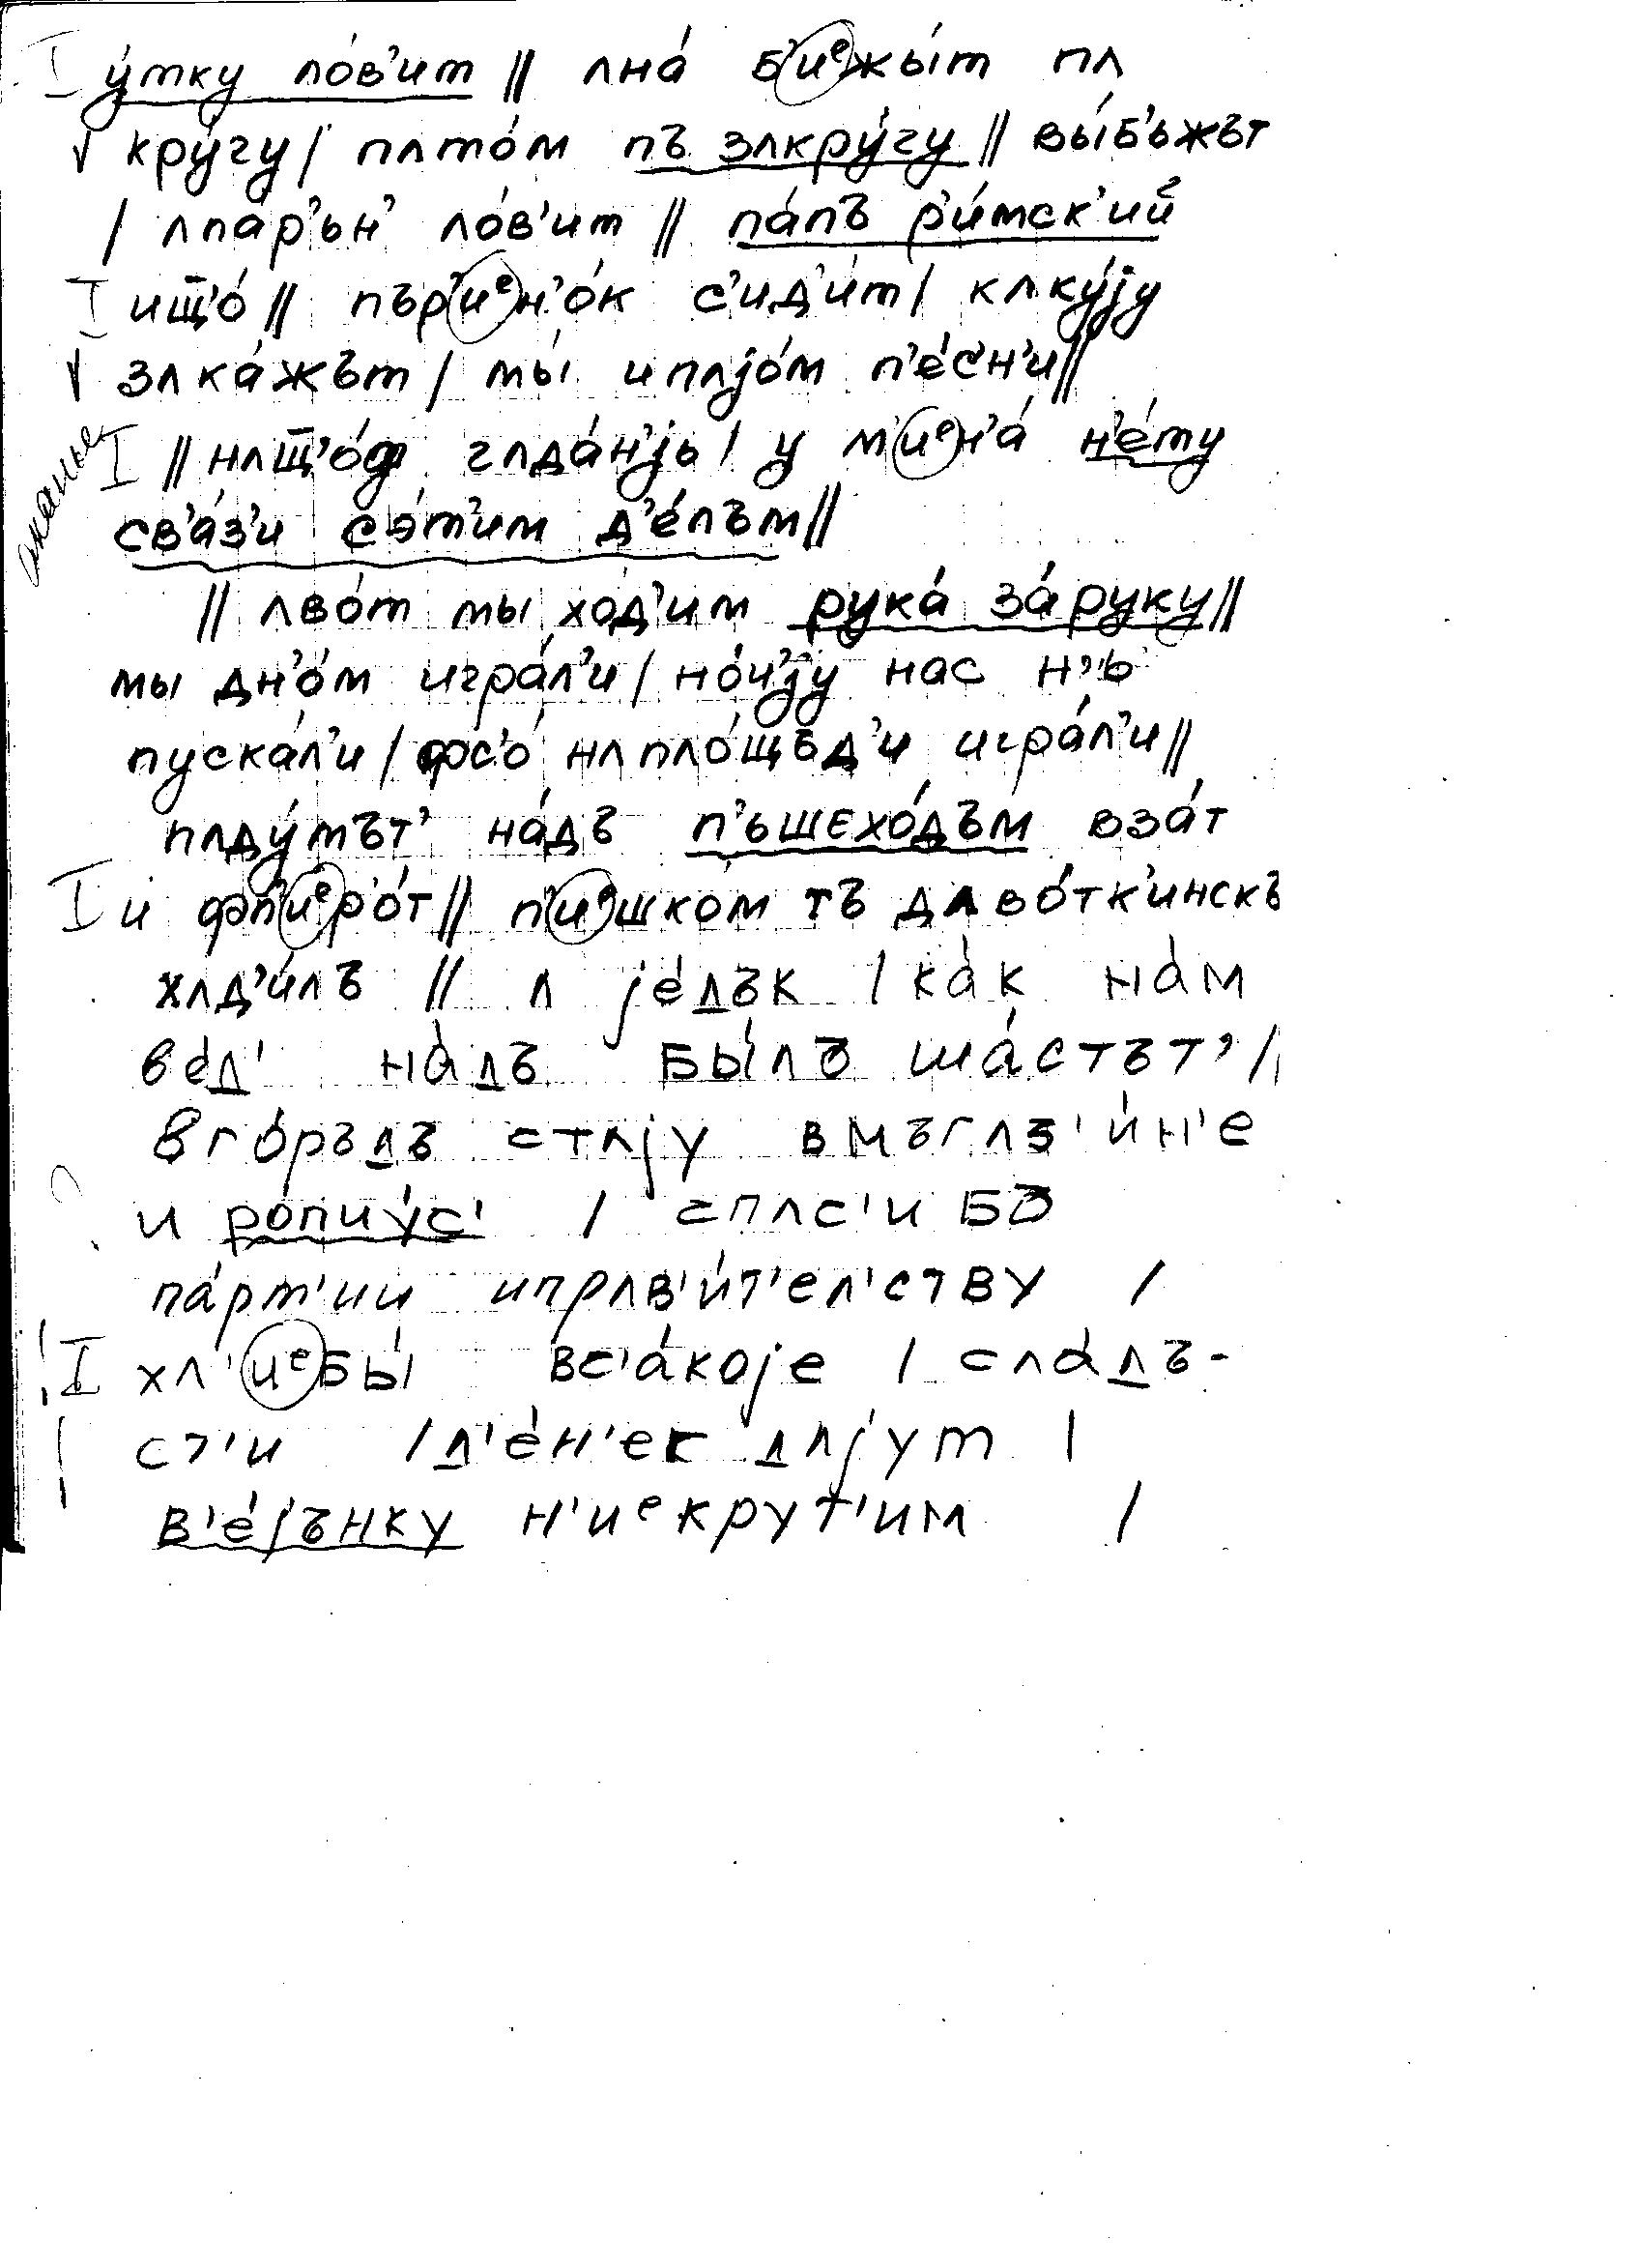 I у́тку ло́в'ит // ʌна́ б'иᵉжы́т пʌ
√ кру́гу / пʌто́м пъ зʌкру́гу // вы́б'ьжът
/ ʌпа́р'ьн' ло́в'ит // па́пъ р'и́мск'ий
I ищ̄'о́ // пър'иᵉн'о́к с'ид'и́т / кʌку́jу
√ зʌка́жът / мы́ и пʌjо́м п'е́с'н'и //
аканье I // нʌщ̄'о́ф гʌда́н'jь / у м'иᵉн'а́ н'е́ту
св'а́з'и сэ́т'им д'е́лъм //
// ʌво́т мы хо́д'им рука́ за́руку //
мы дн'о́м игра́л'и / но́ч'jу нас н'ь
пуска́л'и / фс'о́ нʌпло́щъд'и игра́л'и //
пʌду́мът' на́дъ п'ьшехо́дъм вза́т
I и фп'иᵉр'о́т // п'иᵉшком тъ дʌво́тк'инскъ
хʌд'и́лъ // ʌ jе́дък / ка́к на́м
ве́д' на́дъ бы́лъ ша́стът' //
вго́ръдъ стʌjу вмъгʌз'и́н'е
и ропиу́с' / спʌс'иБО
па́рт'ии ипрʌв'и́т'ел'ству /
I хл'иᵉбы́ вс'а́коjе / сла́дъ-
ст'и / д'е́н'ек дʌjут /
в'е́jънку н'иᵉкрут'им /